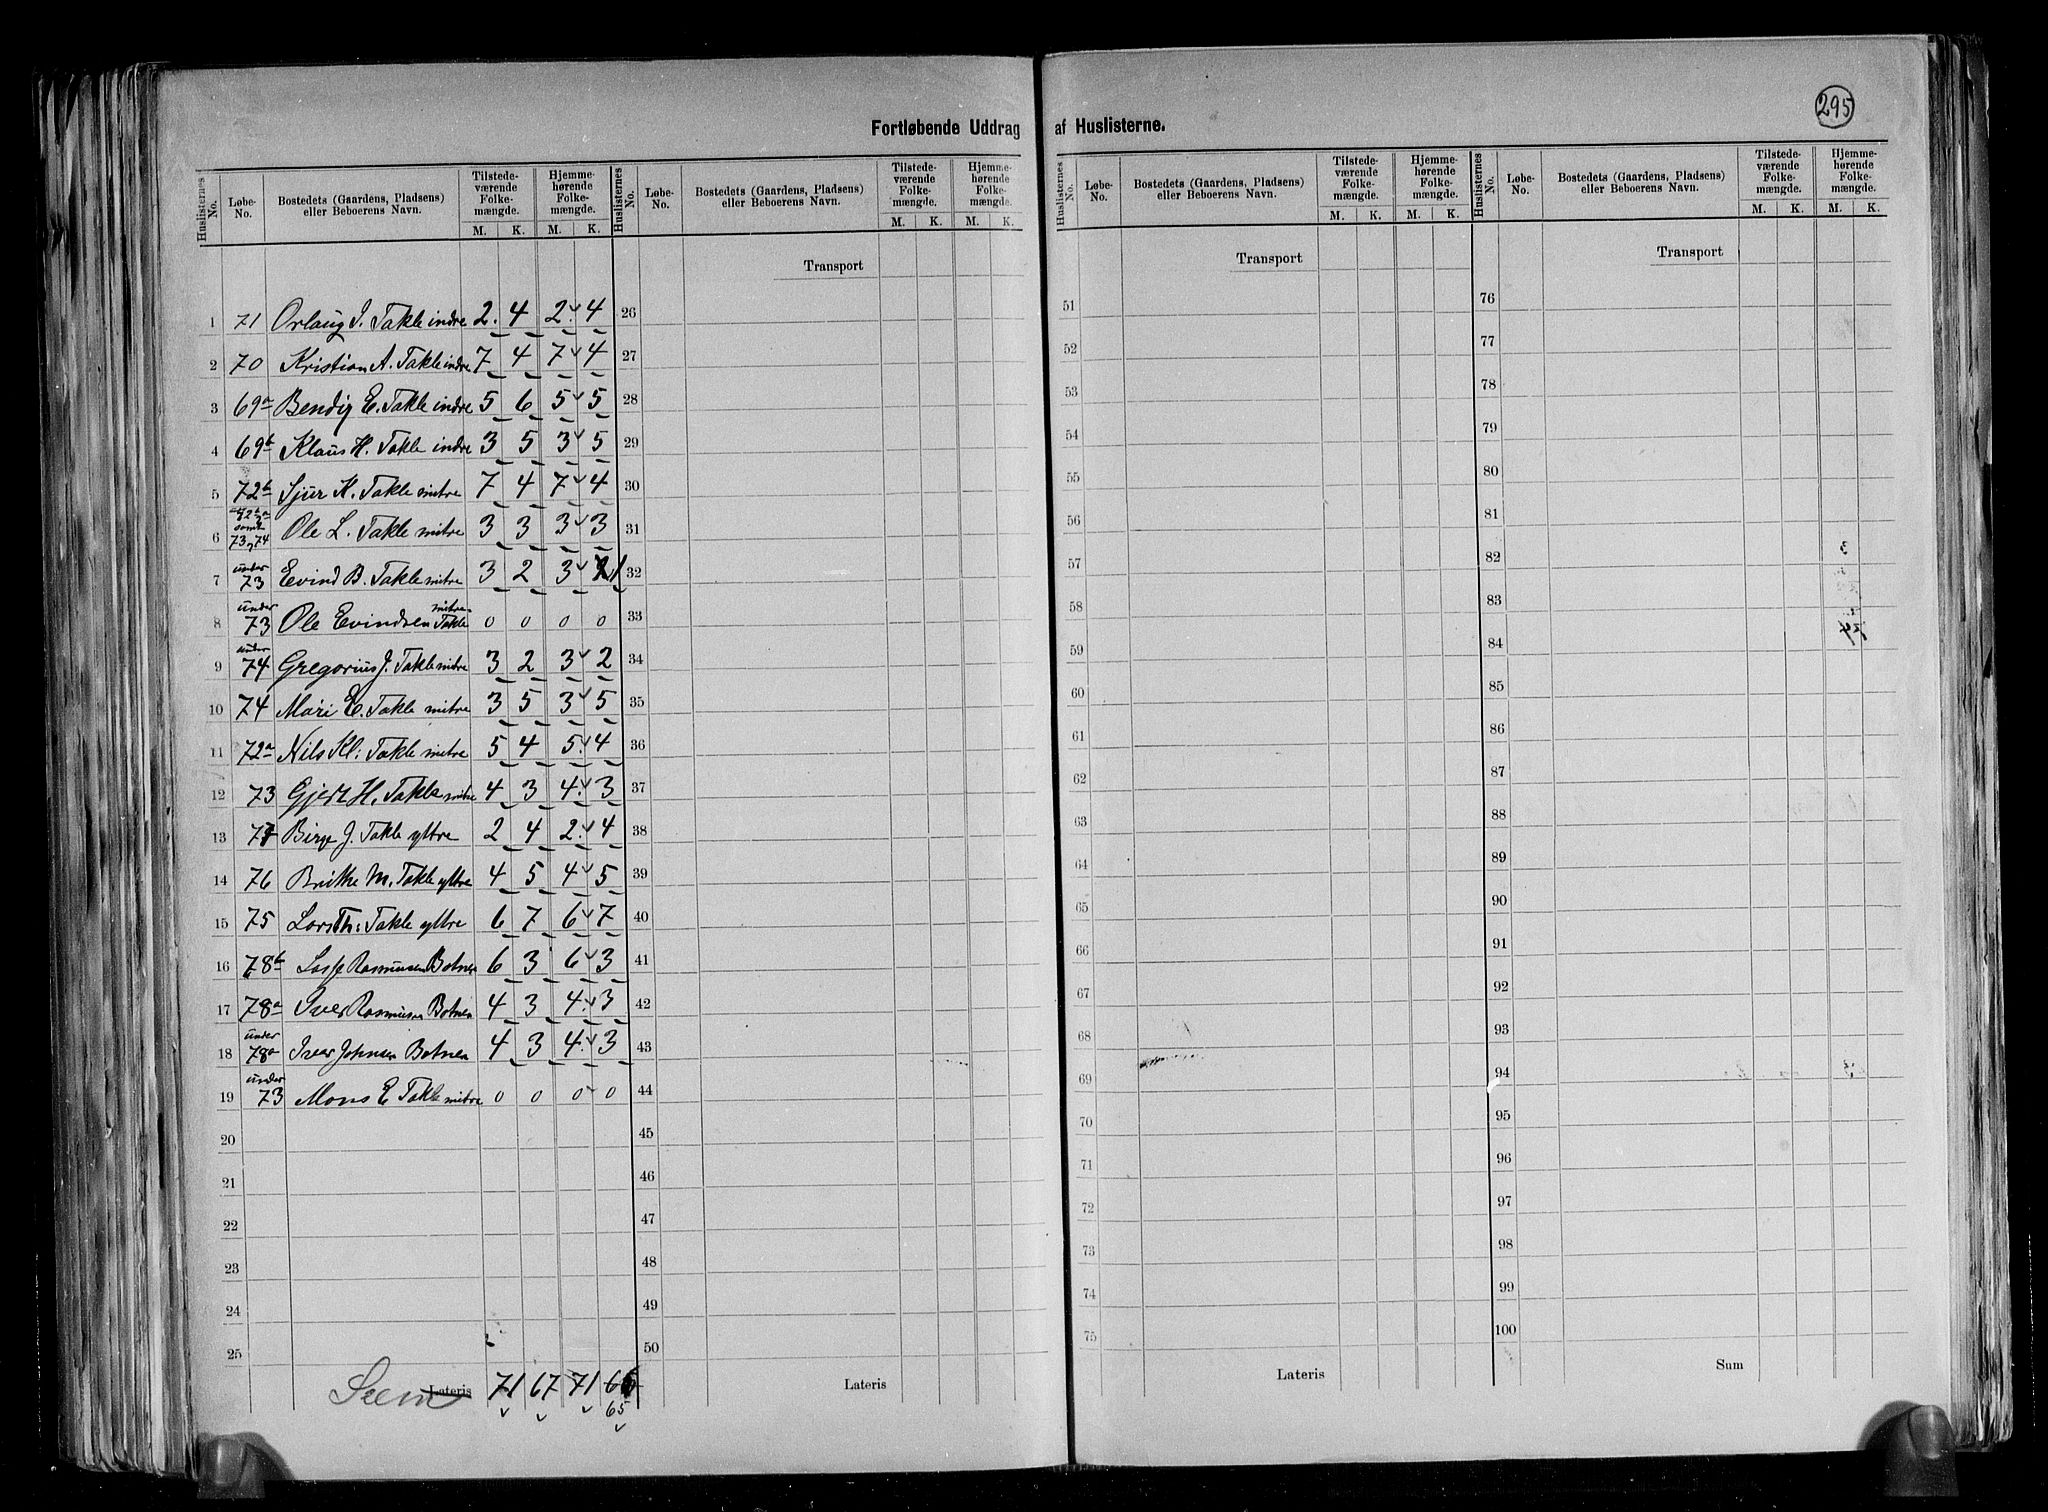 295
Fortløbende Uddrag af Huslisterne.
Huslisternes No. Løbe-No. Bostedets (Gaardens, Pladsens) eller Beboerens Navn. Tilstedeværende Folkemængde. M. K. Hjemmehørende Folkemængde. M. K.
Huslisternes No. Løbe-No. Bostedets (Gaardens, Pladsens) eller Beboerens Navn. Tilstedeværende Folkemængde. M. K. Hjemmehørende Folkemængde. M. K.
Huslisternes No. Løbe-No. Bostedets (Gaardens, Pladsens) eller Beboerens Navn. Tilstedeværende Folkemængde. M. K. Hjemmehørende Folkemængde. M. K.
Huslisternes No. Løbe-No. Bostedets (Gaardens, Pladsens) eller Beboerens Navn. Tilstedeværende Folkemængde. M. K. Hjemmehørende Folkemængde. M. K.
Transport Transport Transport
1 71 Orlaug I. Takle indre 2 4 2 4 26 51 76
2 70 Kristian A. Takle indre 7 4 7 4 27 52 77
3 69a Bendig E. Takle indre 5 6 5 5 28 53 78
4 69b Klaus H. Takle indre 3 5 3 5 29 54 79
5 72b Sjur K. Takle mitre 7 4 7 4 30 55 80
6 samt 73, 74 Ole L. Takle mitre 3 3 3 3 31 56 81
7 under 73 Eevind B. Takle mitre 3 2 3 1 32 57 82
8 under 73 Ole Eevindsen mitre Takle 0 0 0 0 33 58 83
9 under 74 Gregorius J. Takle mitre 3 2 3 2 34 59 84
10 74 Mari E. Takle mitre 3 5 3 5 35 60 85
11 72a Nils Kl: Takle mitre 5 4 5 4 36 61 86
12 73 Gjert H. Takle mitre 4 3 4 3 37 62 87
13 Birge J. Takle yttre 2 4 2 4 38 63 88
14 76 M. Takle yttre 4 5 4 5 39 64 89
15 75 Lars Th: Takle yttre 6 7 6 7 40 65 90
16 78b Rasmusen Botnen 6 3 6 3 41 66 91
17 78a Iver Rasmusen Botnen 4 3 4 3 42 67 92
18 under 78a Iver Johnsen Botnen 4 3 4 3 43 68 93
19 under 73 Mons E Takle mitre 0 0 0 0 44 69 94
20 45 70 95
21 46 71 96
22 47 72 97
23 48 73 98
24 49 74 99
25 50 75 100
Lateris 71 67 71 66 Lateris Lateris Sum
65